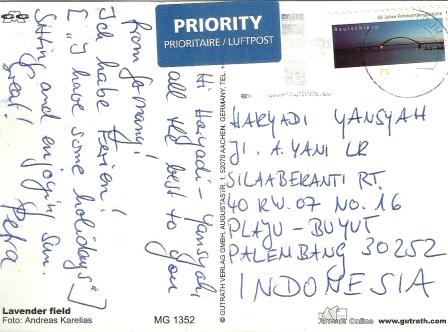 PRIORITY
PRIORITAIRE / LUFTPOST
50 Jahre Fehmarnsundbrücke
Deutschland
75
Hi Haryadi-Yansyah,
all the best to you
from Germany!
Ich habe Ferien!
[ "I have some holidays" ]
Sitting and enjoying sun.
Great!
Petra
HARYADI YANSYAH
Jl. A. YANI LR
SILAABERANTI RT.
40 RW. 07 NO. 16
PLAJU - BUYUT
PALEMBANG 30252
INDONESIA
Lavender field
Foto: Andreas Karelias
MG 1352
© GUTRATH VERLAG GMBH, AUGUSTASTR. 1, 52070 AACHEN, GERMANY, TEL.
Online
www.gutrath.com